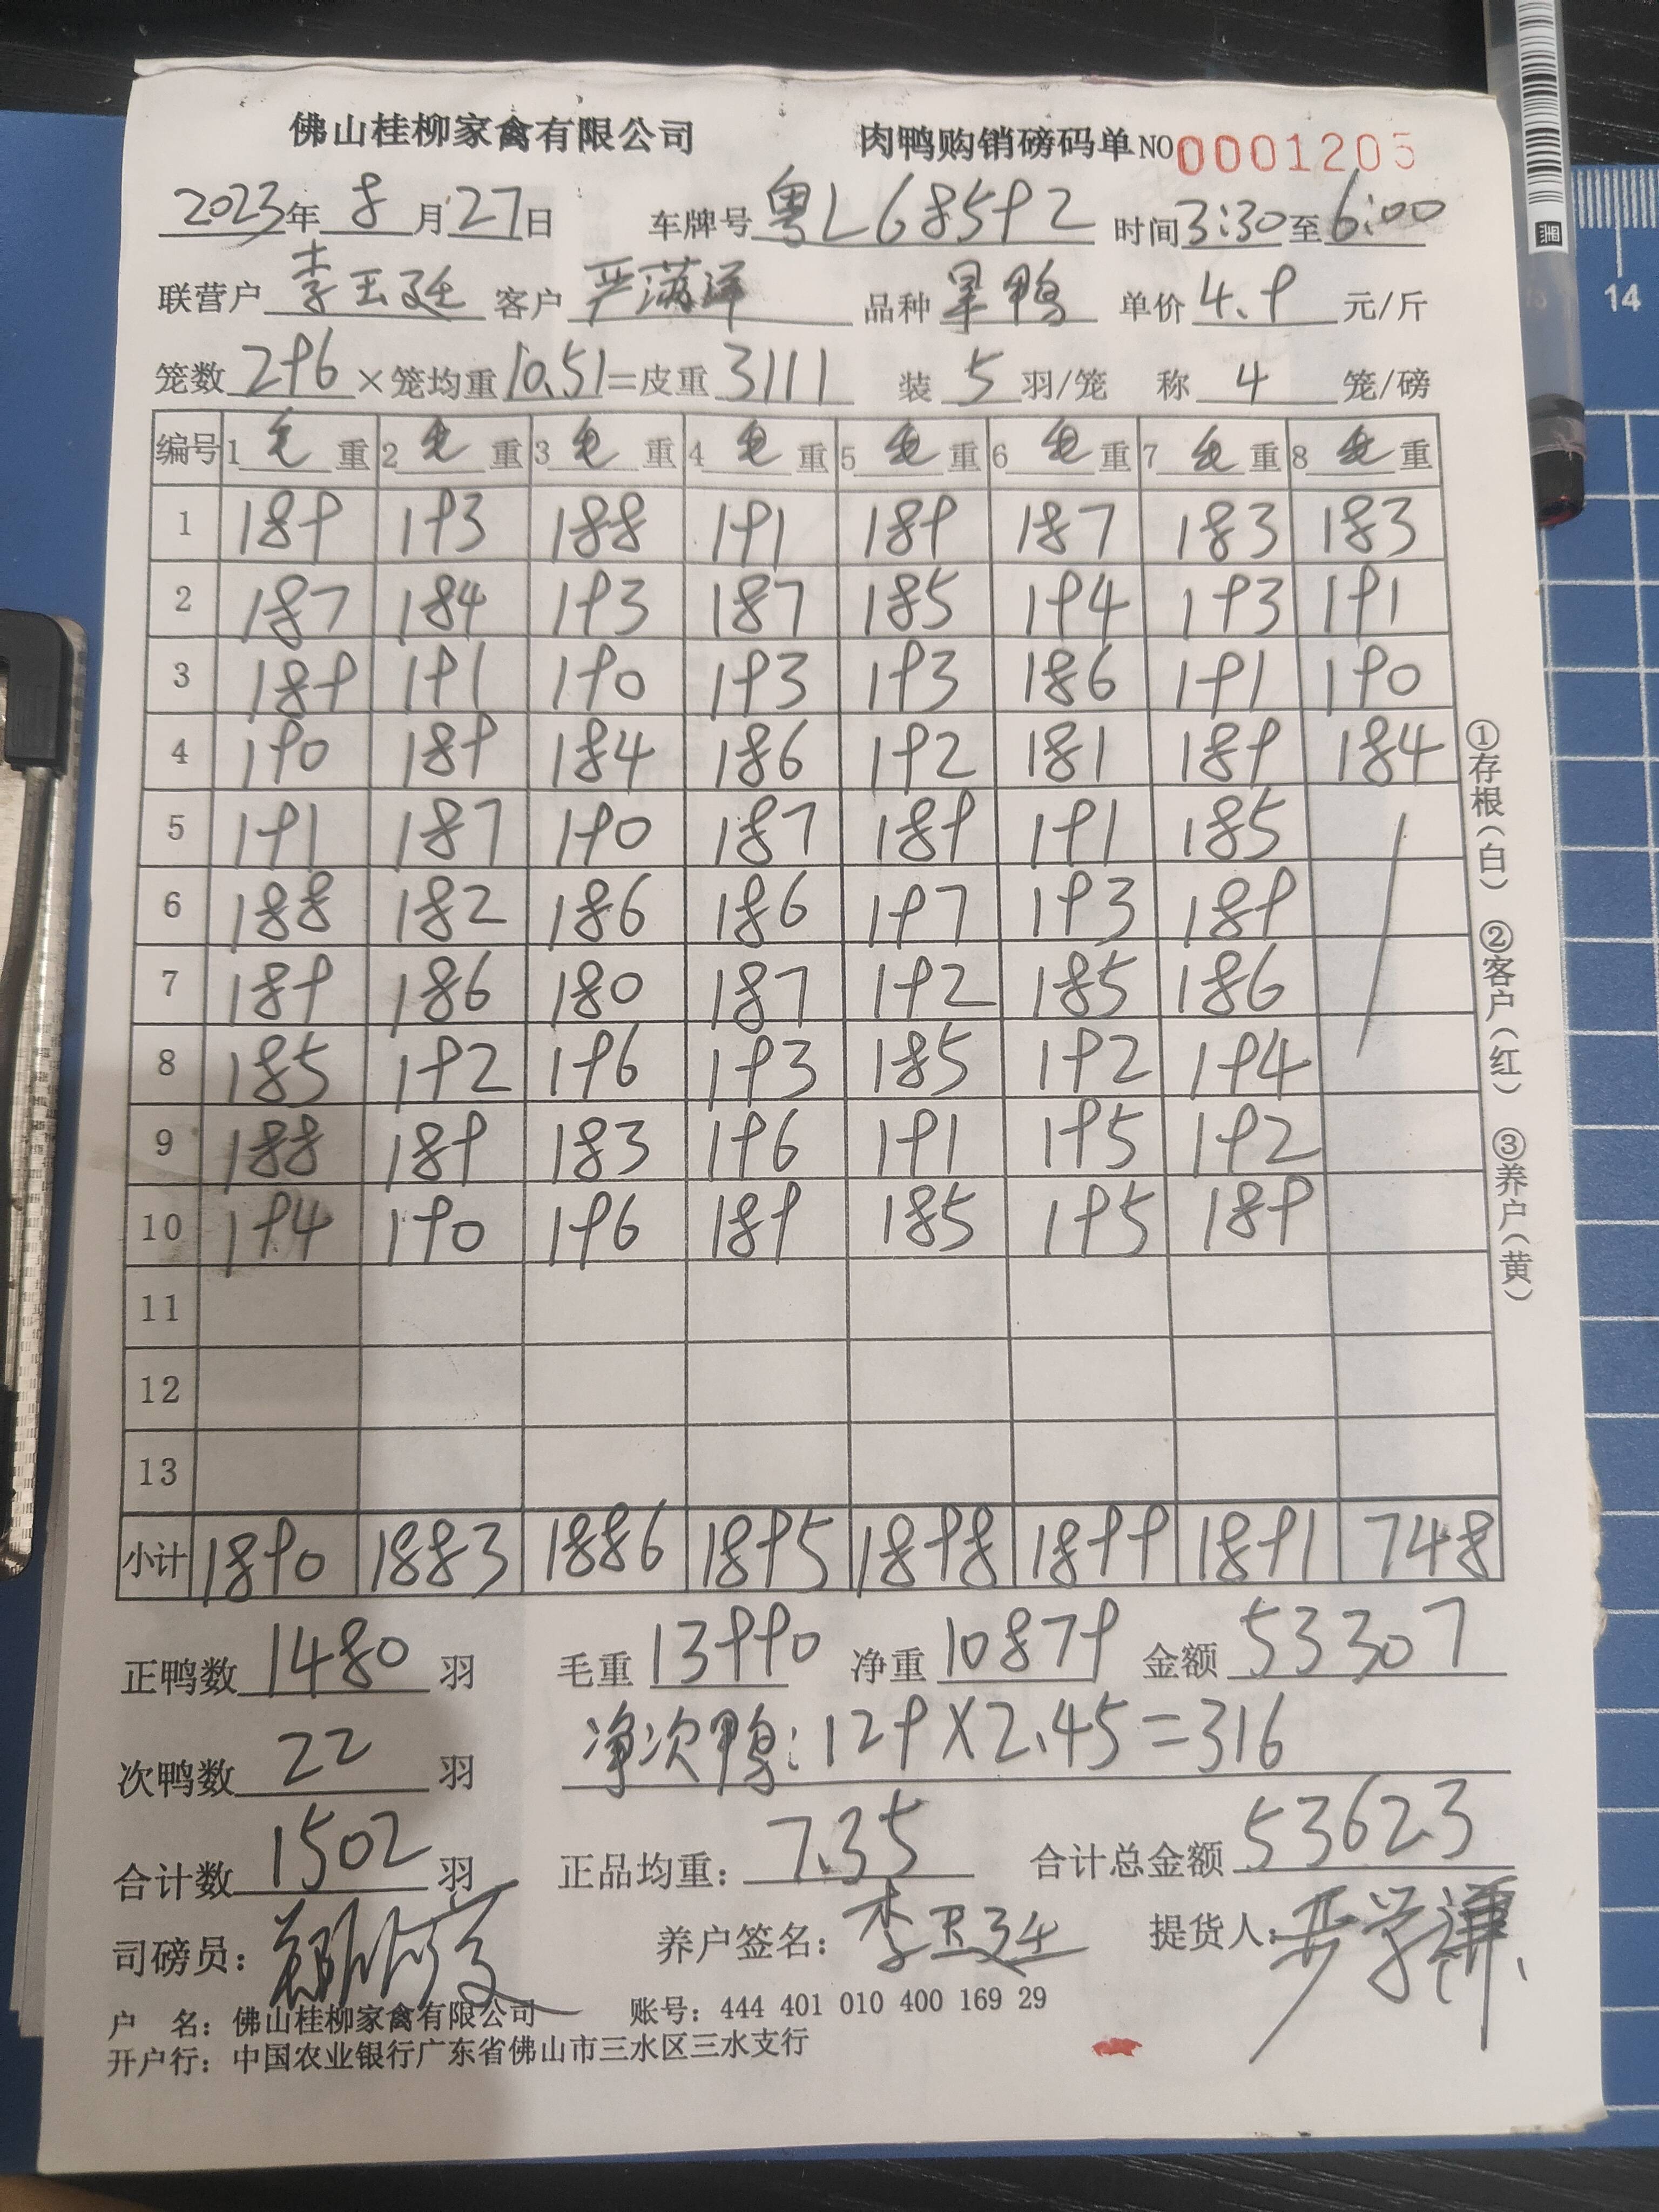 佛山桂柳家禽有限公司 肉鸭购销磅码单 NO 0001205
2023年 8 月 27 日 车牌号 粤L68592 时间 3:30 至 6:00
联营户 李玉廷 客户 严满洋 品种 旱鸭 单价 4.9 元/斤
笼数 296 ×笼均重 10.51 =皮重 3111 装 5 羽/笼 称 4 笼/磅
编号 1 毛 重 2 毛 重 3 毛 重 4 毛 重 5 毛 重 6 毛 重 7 毛 重 8 毛 重
1 189 193 188 191 189 187 183 183
2 187 184 193 187 185 194 193 191
3 189 191 190 193 193 186 191 190
4 190 189 184 186 192 181 189 184
5 191 187 190 187 189 191 185
6 188 182 186 186 197 193 189
7 189 186 180 187 192 185 186
8 185 192 196 193 185 192 194
9 188 189 183 196 191 195 192
10 194 190 196 189 185 195 189
11
12
13
小计 1890 1883 1886 1895 1898 1899 1891 748
①存根(白) ②客户(红) ③养户(黄)
正鸭数 1480 羽 毛重 13990 净重 10879 金额 53307
次鸭数 22 羽 净次鸭: 129×2.45=316
合计数 1502 羽 正品均重: 7.35 合计总金额 53623
司磅员: 养户签名: 李玉廷 提货人:
户 名: 佛山桂柳家禽有限公司 账号: 444 401 010 400 169 29
开户行: 中国农业银行广东省佛山市三水区三水支行
14